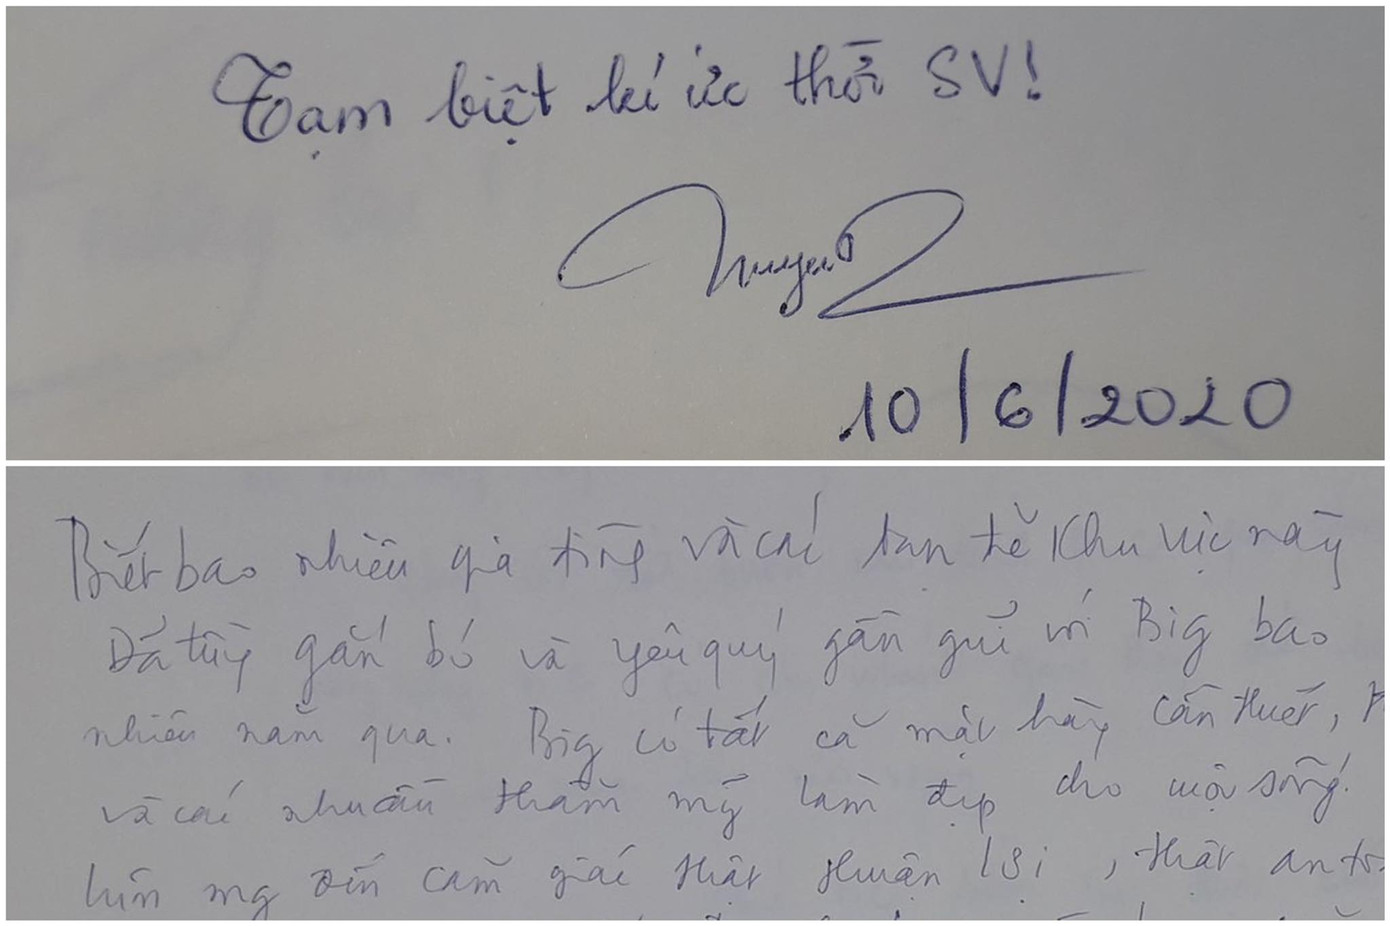 Tạm biệt kí ức thời SV!
Nguyen
10/6/2020
Biết bao nhiêu gia đình và các bạn trẻ khu vực này
Đã từng gắn bó và yêu quý gần gũi với Big bao
nhiêu năm qua. Big có tất cả mặt hàng cần thiết,
và các nhu cầu thẩm mỹ làm đẹp cho cuộc sống.
luôn mg đến cảm giác thật thuận lợi, thật an